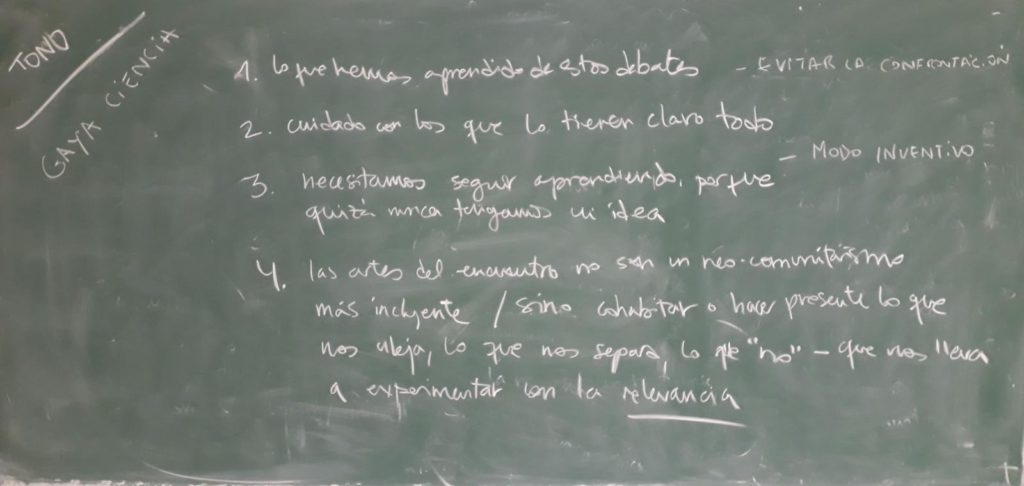 TONO
GAYA CIENCIA
1. lo que hemos aprendido de estos debates - EVITAR LA CONFRONTACIÓN
2. cuidado con los que lo tienen claro todo
- MODO INVENTIVO
3. necesitamos seguir aprendiendo, porque
quizá nunca tengamos ni idea
4. las artes del encuentro no son un neo-comunitarismo
más incluyente / sino cohabitar o hacer presente lo que
nos aleja, lo que nos separa, lo que "no" - que nos lleva
a experimentar con la relevancia